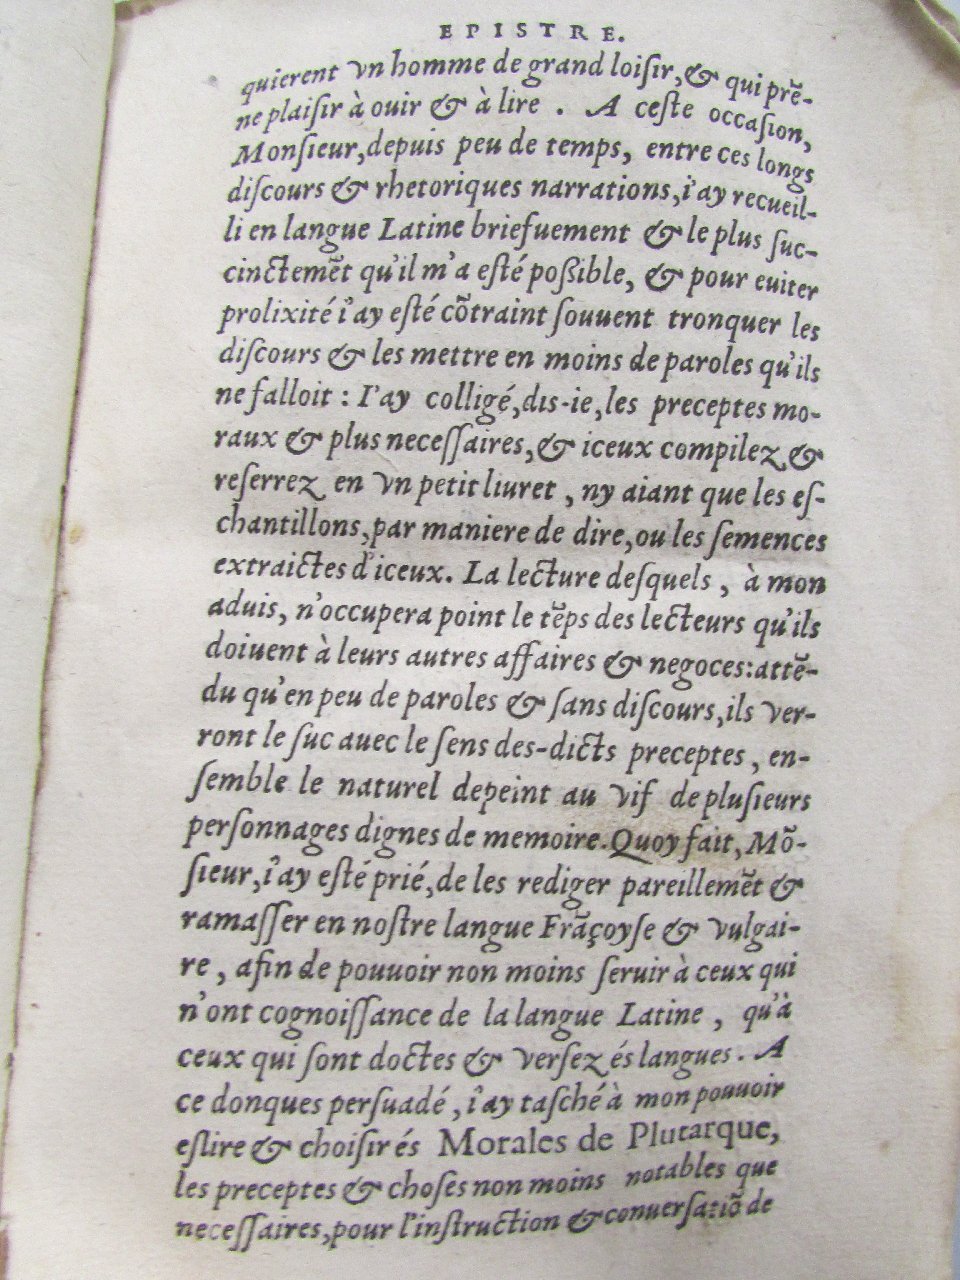 EPISTRE.
quierent vn homme de grand loiſir, & qui prẽ-
ne plaiſir à ouir & à lire . A ceſte occaſion,
Monſieur, depuis peu de temps, entre ces longs
diſcours & rhetoriques narrations, i'ay recueil-
li en langue Latine briefuement & le plus ſuc-
cinctemẽt qu'il m'a eſté poßible, & pour euiter
prolixité i'ay eſté cõtraint ſouuent tronquer les
diſcours & les mettre en moins de paroles qu'ils
ne falloit : I'ay colligé, dis-ie, les preceptes mo-
raux & plus neceſſaires, & iceux compilez &
reſerrez en vn petit liuret , ny aiant que les eſ-
chantillons, par maniere de dire, ou les ſemences
extraictes d'iceux. La lecture deſquels , à mon
aduis, n'occupera point le tẽps des lecteurs qu'ils
doiuent à leurs autres affaires & negoces: attẽ-
du qu'en peu de paroles & ſans diſcours, ils ver-
ront le ſuc auec le ſens des-dicts preceptes , en-
ſemble le naturel depeint au vif de pluſieurs
perſonnages dignes de memoire. Quoy fait, Mõ-
ſieur, i'ay eſté prié, de les rediger pareillemẽt &
ramaſſer en noſtre langue Frãçoyſe & vulgai-
re , afin de pouuoir non moins ſeruir à ceux qui
n'ont cognoiſſance de la langue Latine , qu'à
ceux qui ſont doctes & verſez és langues . A
ce donques perſuadé , i'ay taſché à mon pouuoir
eſlire & choiſir és Morales de Plutarque,
les preceptes & choſes non moins notables que
neceſſaires, pour l'inſtruction & conuerſatiõ de